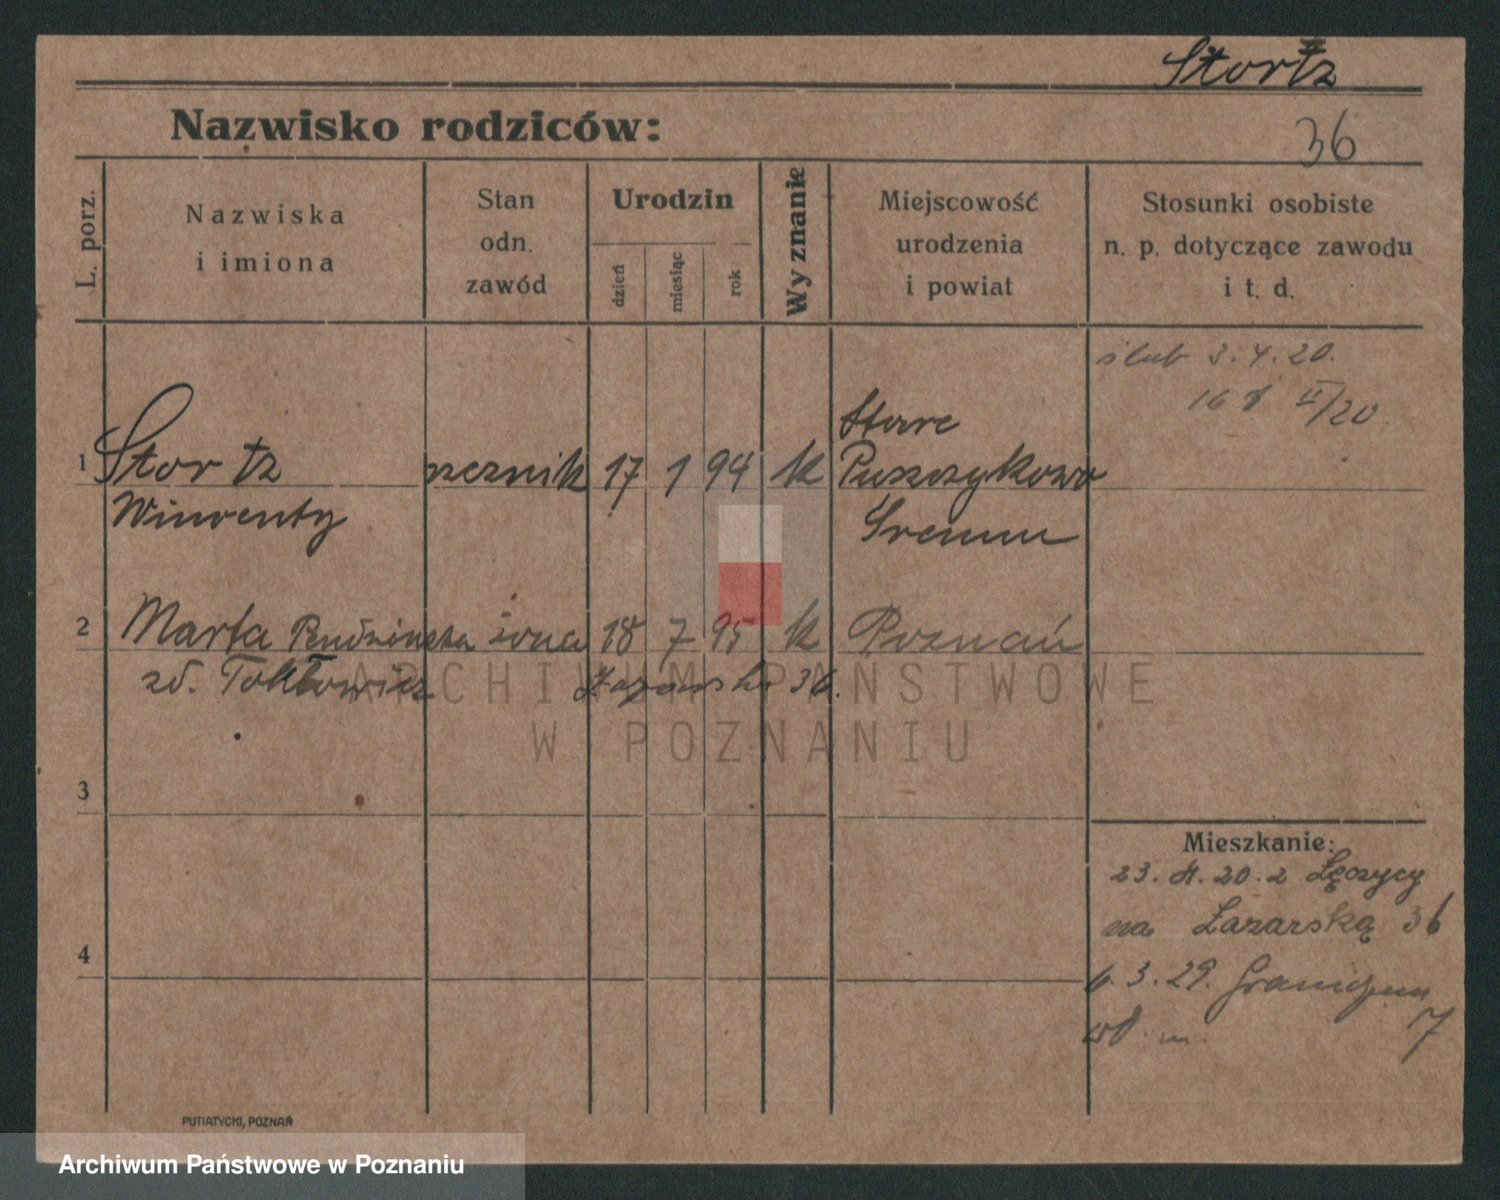 Stortz
Nazwisko rodziców:
36
L. porz.
Nazwiska
i imiona
Stan
odn.
zawód
Urodzin
dzień
miesiąc
rok
Wyznanie
Miejscowość
urodzenia
i powiat
Stosunki osobiste
n. p. dotyczące zawodu
i t. d.
ślub 3.4.20.
II/20.
1 Stortz rzeznik 17 1 94 k Stare
Puszczykowo
Wincenty Śremm
2 Marta żona 18 7 95 k Poznań
zd. 36.
3
4
Mieszkanie:
23. 4. 20. z Łęczycy
na Łazarską 36
6. 3. 29.
7
PUTIATYCKI, POZNAŃ
ARCHIWUM PAŃSTWOWE
W POZNANIU
Archiwum Państwowe w Poznaniu